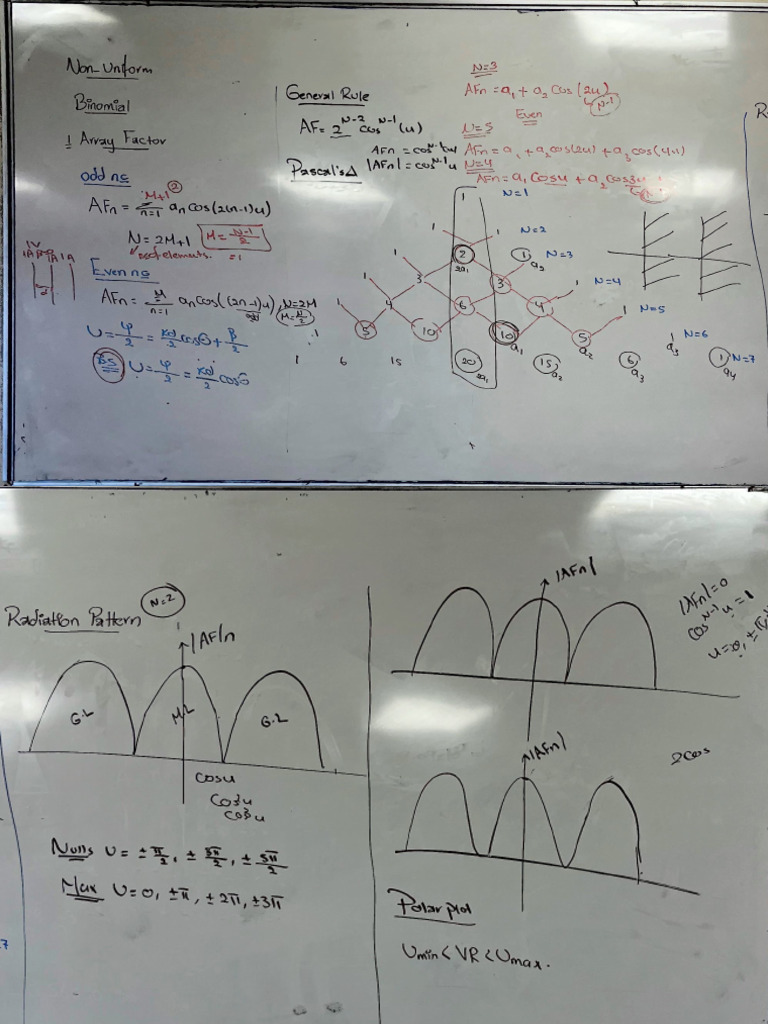 Non-Uniform
Binomial
1 Array Factor
odd no
AFn = Σ n=1 M+1 an cos(2(n-1)u)
N = 2M+1 M = N-1/2
=1
Even no
AFn = Σ n=1 M an cos((2n-1)u) N=2M
M=N/2
U = φ/2 = kd/2 cosθ + β/2
BS U = φ/2 = kd/2 cosθ
General Rule
AF = 2^N-2 cos^N-1 (u)
AFn = cos^N-1 u
Pascal's Δ |AFn| = cos^N-1 u
N=3
AFn = a1 + a2 cos(2u)
N-1
Even
N=5
AFn = a1 + a2 cos(2u) + a3 cos(4u)
N=4
AFn = a1 cosu + a2 cos3u
1 N=1
1 1 N=2
1 2 1 N=3
2a1 a2
1 3 3 1 N=4
1 4 6 4 1 N=5
1 5 10 10 5 1 N=6
a1 a2 a3
1 6 15 20 15 6 1 N=7
2a1 a2 a3 a4
R
Radiation Pattern N=2
|AF|n
G.L M.L G.L
cosu
cos³u
cos³u
Nulls U = ±π/2, ± 3π/2, ± 5π/2
Max U=0, ±π, ±2π, ±3π
|AFn|
|AFn|=0
cos^N-1 u = 1
|AFn|
2cos
Polar plot
Umin < VR < Umax.
7